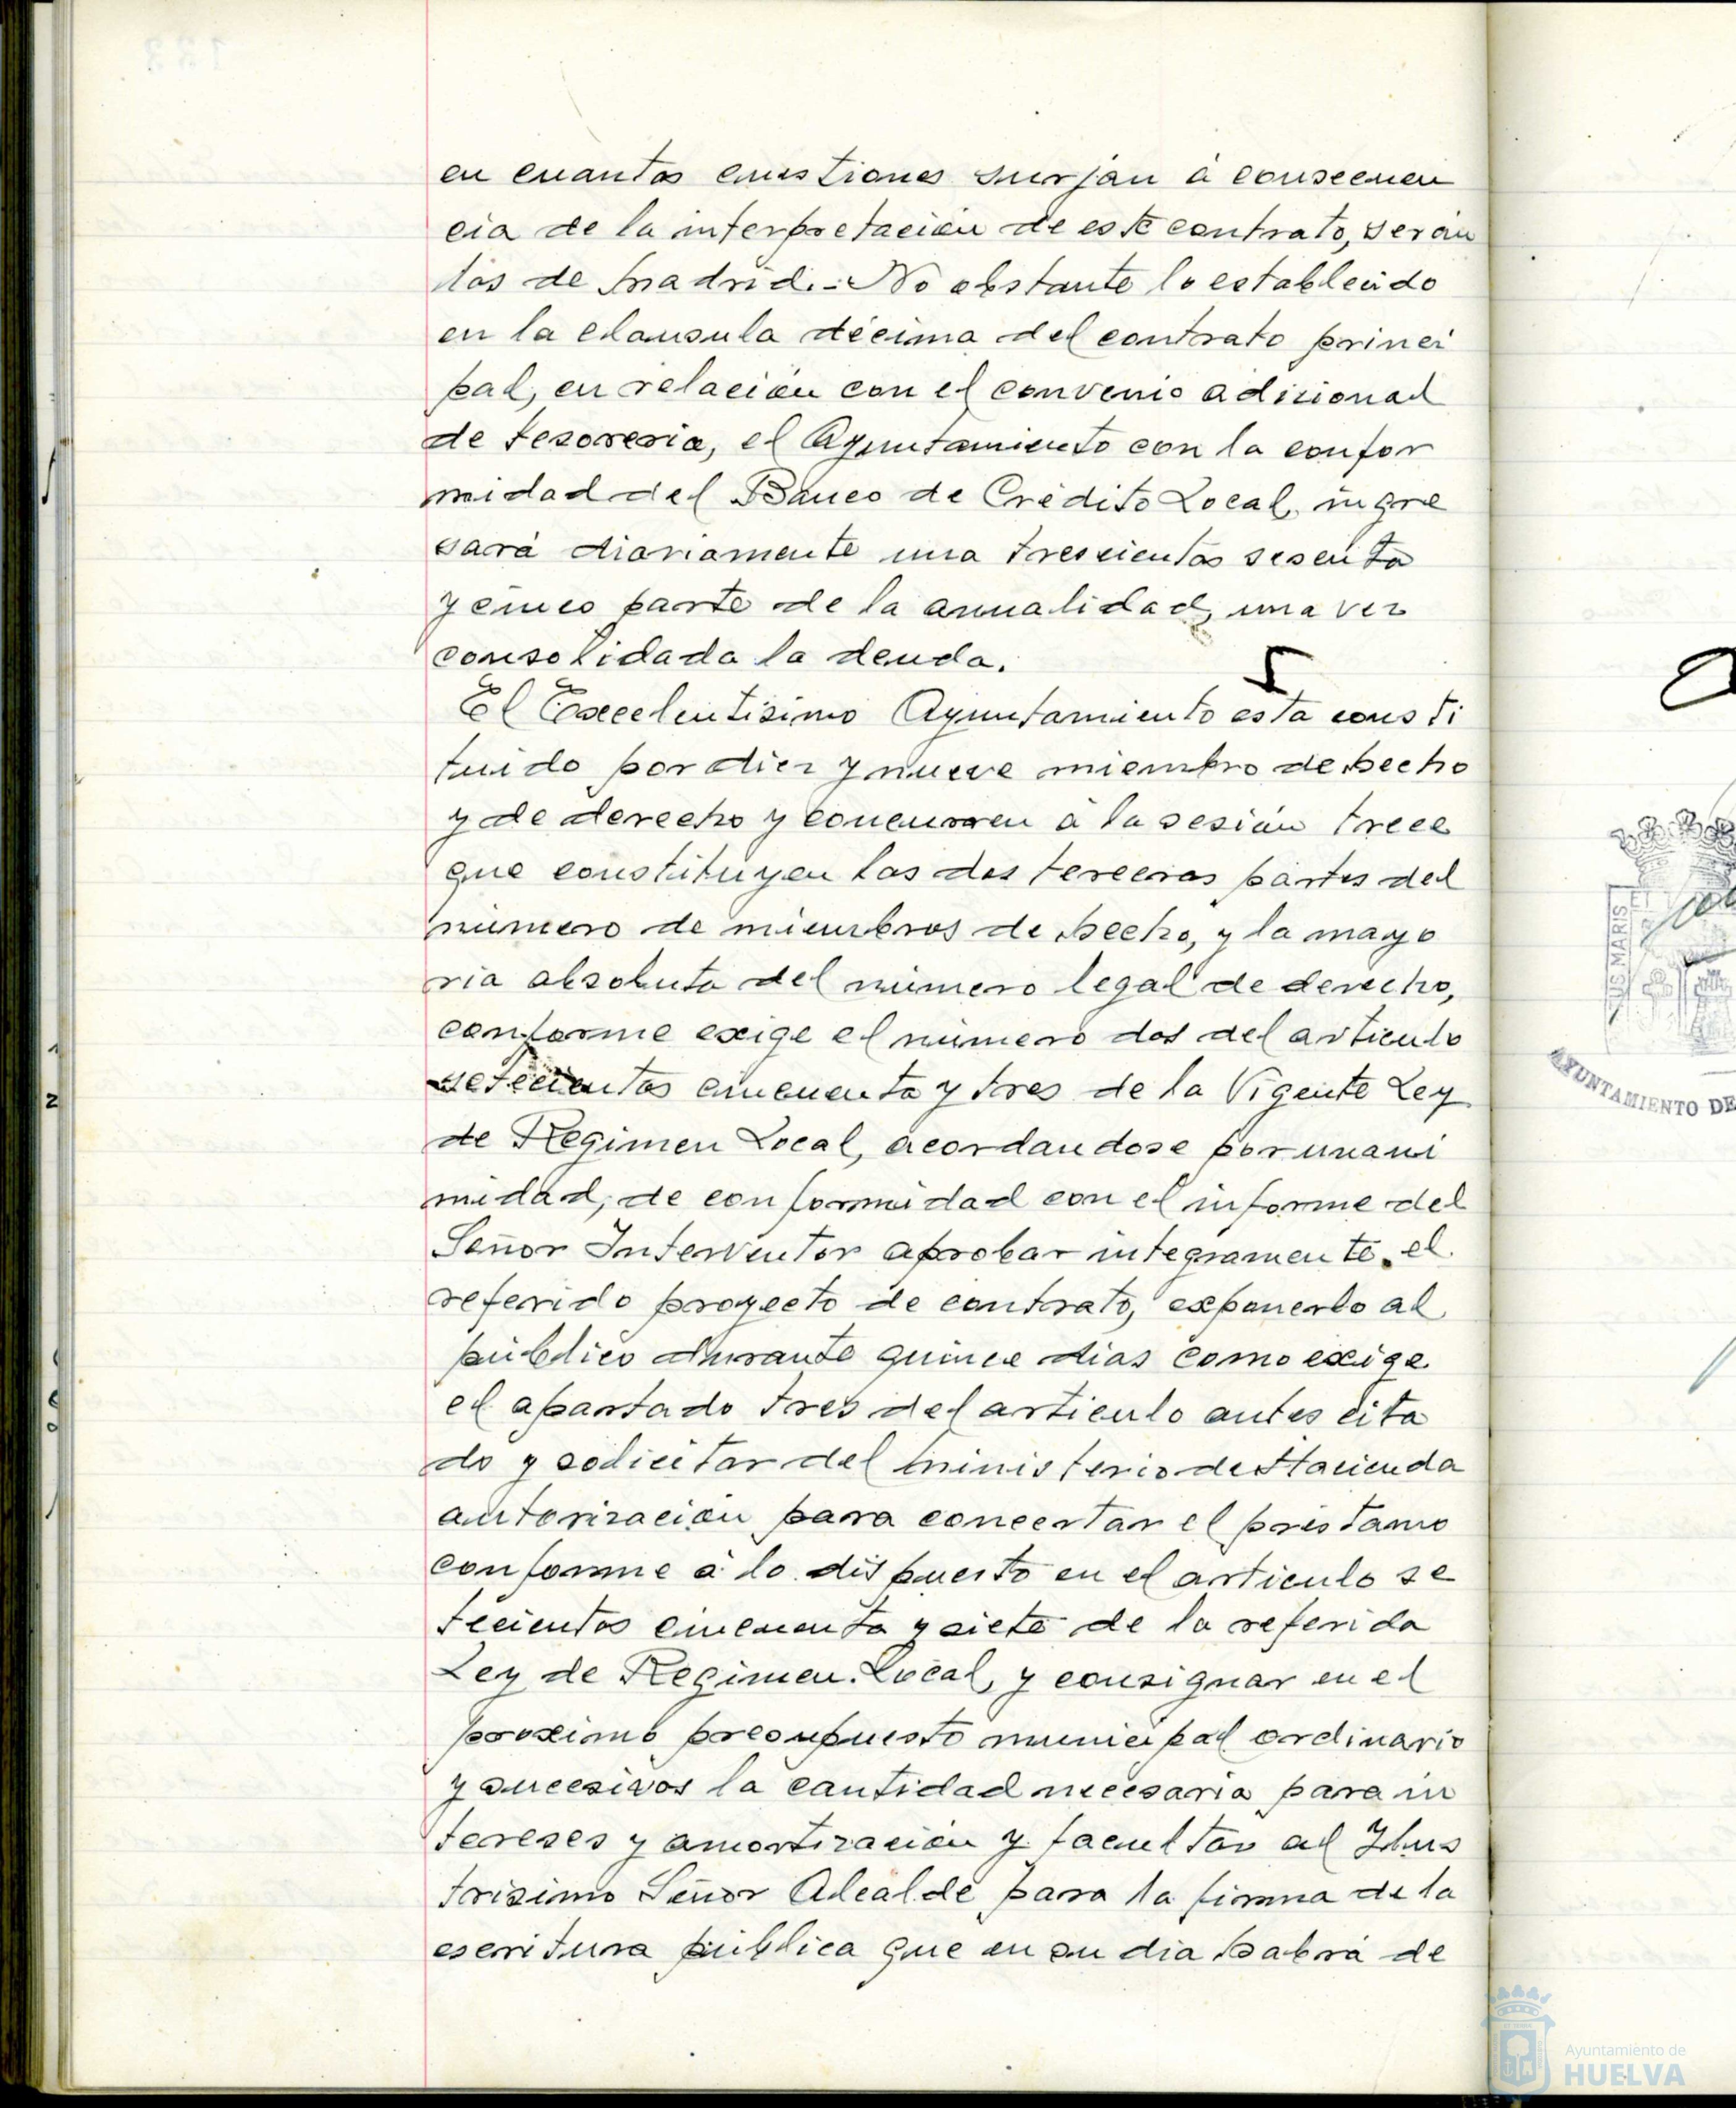 en cuantas cuestiones surjan á consecuen
cia de la interpretación de este contrato, serán
los de Madrid.- No obstante lo establecido
en la clausula décima del contrato princi
pal, en relación con el convenio adicional
de tesoreria, el Ayuntamiento con la confor
midad del Banco de Crédito Local, ingre
sará diariamente una trescientas sesenta
y cinco parte de la anualidad, una vez
consolidada la deuda.
El Excelentisimo Ayuntamiento esta consti
tuido por diez y nueve miembro de hecho
y de derecho y concurren á la sesión trece
que constituyen las dos terceras partes del
número de miembros de hecho, y la mayo
ria absoluta del número legal de derecho,
conforme exige el número dos del articulo
setecientos cincuenta y tres de la Vigente Ley
de Regimen Local, acordandose por unani
midad, de conformidad con el informe del
Señor Interventor aprobar integramente el
referido proyecto de contrato, exponerlo al
público durante quince dias como exige
el apartado tres del articulo antes cita
do y solicitar del Ministerio de Hacienda
autorización para concertar el préstamo
conforme á lo dispuesto en el articulo se
tecientos cincuenta y siete de la referida
Ley de Regimen Local, y consignar en el
proximo presupuesto municipal ordinario
y sucesivos la cantidad necesaria para in
tereses y amortización y facultar al Ilus
trisimo Señor Alcalde para la firma de la
escritura pública que en su dia habrá de
US MARIS
AYUNTAMIENTO DE
Ayuntamiento de
HUELVA